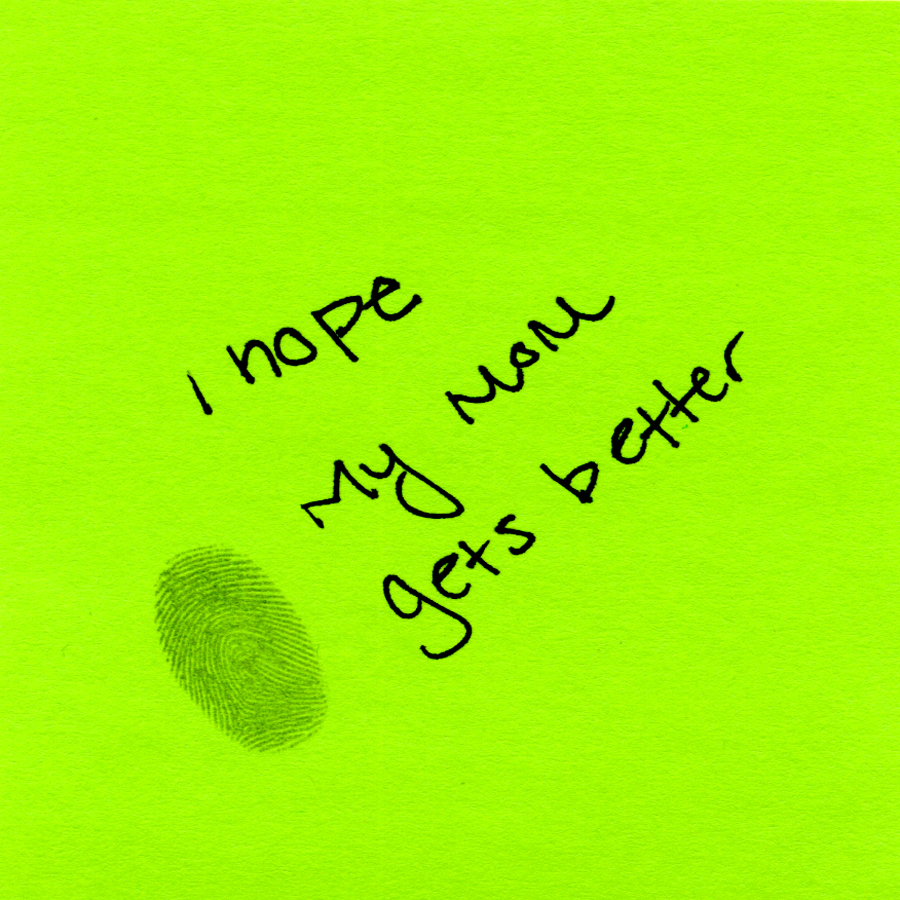 I hope
My Mom
gets better